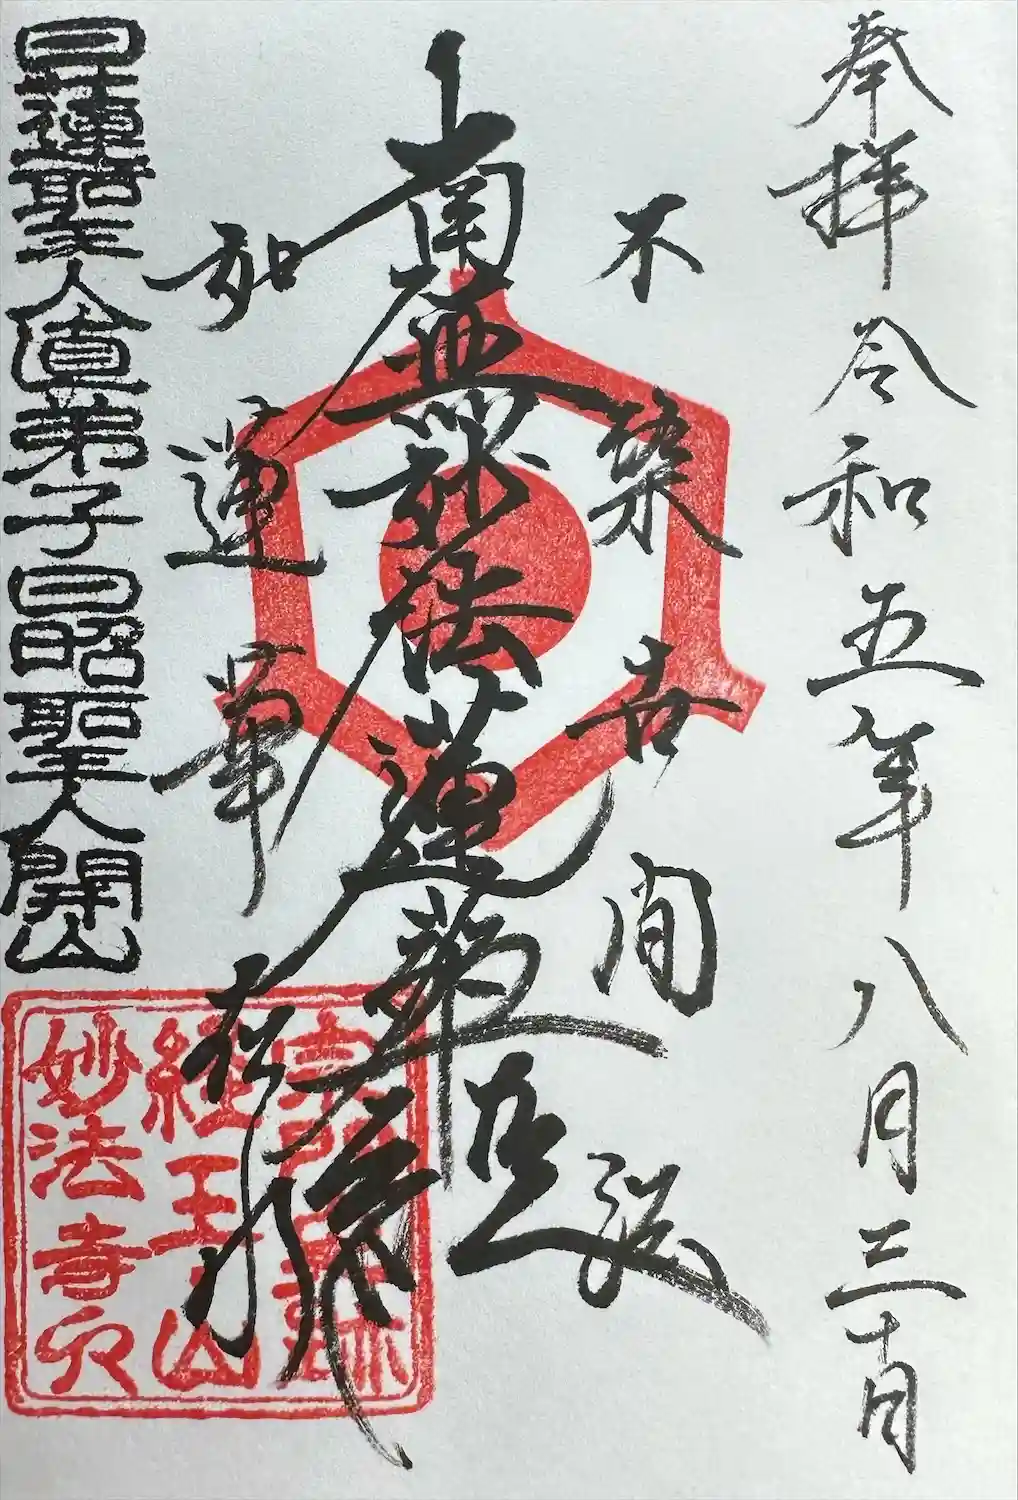 奉拝 令和五年八月三十日
不染世間法
南無妙法蓮華経
如蓮華在水
日蓮聖人直弟子日昭聖人開山
宗門史跡
経王山
妙法寺印